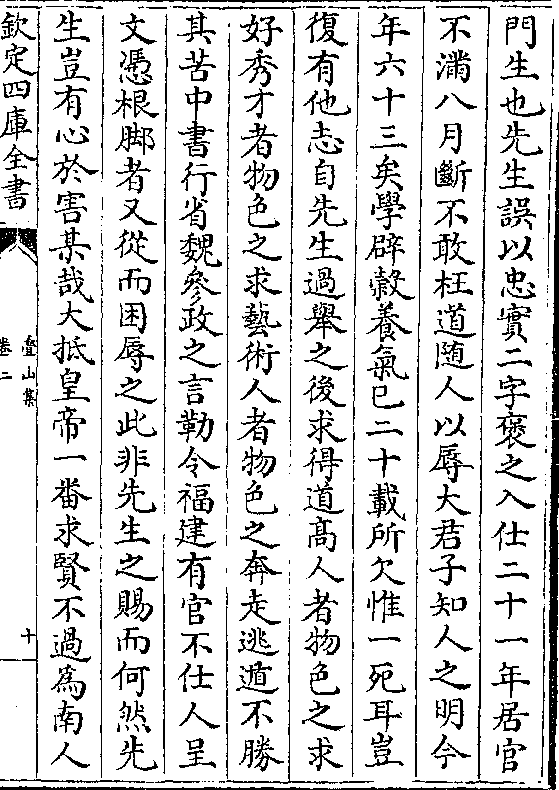 門生也先生誤以忠實二字褒之入仕二十一年居官
不滿八月斷不敢枉道隨人以辱大君子知人之明今
年六十三矣學辟穀養氣已二十載所欠惟一死耳豈
復有他志自先生過舉之後求得道髙人者物色之求
好秀才者物色之求藝術人者物色之奔走逃遁不勝
其苦中書行省魏參政之言勒令福建有官不仕人呈
文憑根脚者又從而困辱之此非先生之賜而何然先
生豈有心於害某哉大抵皇帝一番求賢不過為南人
欽定四庫全書
疊山集
卷二
十